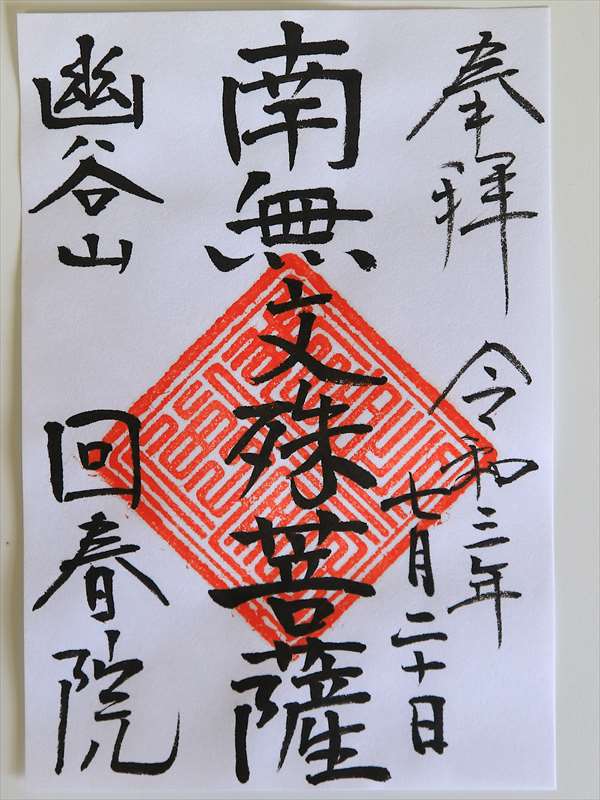 奉拝
令和三年
七月二十日
南無文殊菩薩
幽谷山
回春院